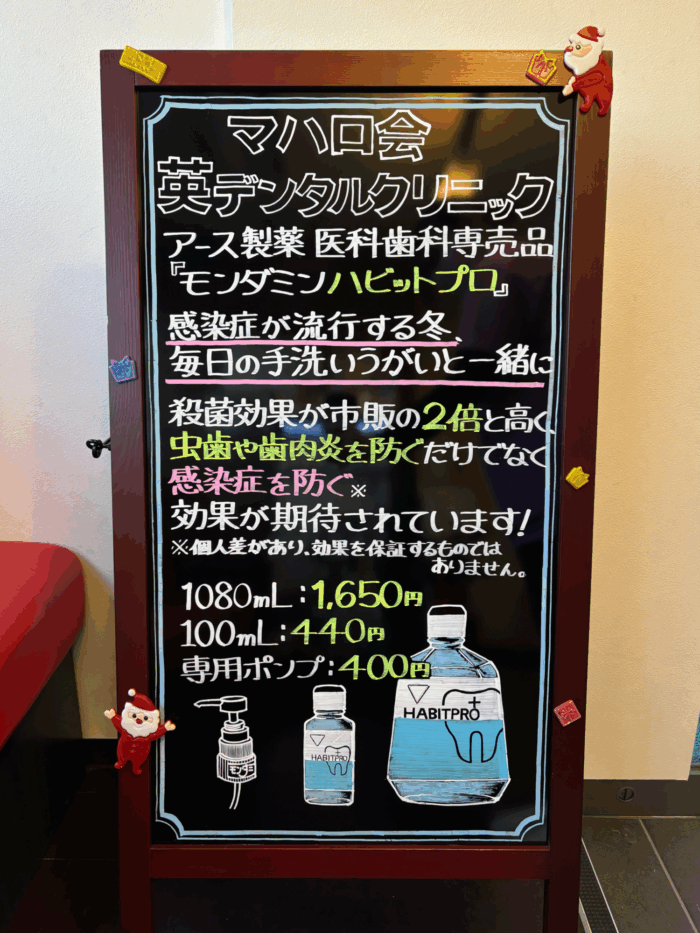 マハロ会
英デンタルクリニック
アース製薬 医科歯科専売品
『モンダミンハビットプロ』
感染症が流行する冬、
毎日の手洗いうがいと一緒に
殺菌効果が市販の2倍と高く
虫歯や歯肉炎を防ぐだけでなく
感染症を防ぐ※
効果が期待されています!
※個人差があり、効果を保証するものでは
ありません。
1080mL:1,650円
100mL:440円
専用ポンプ:400円
HABITPRO
HABITPRO
モンダミン